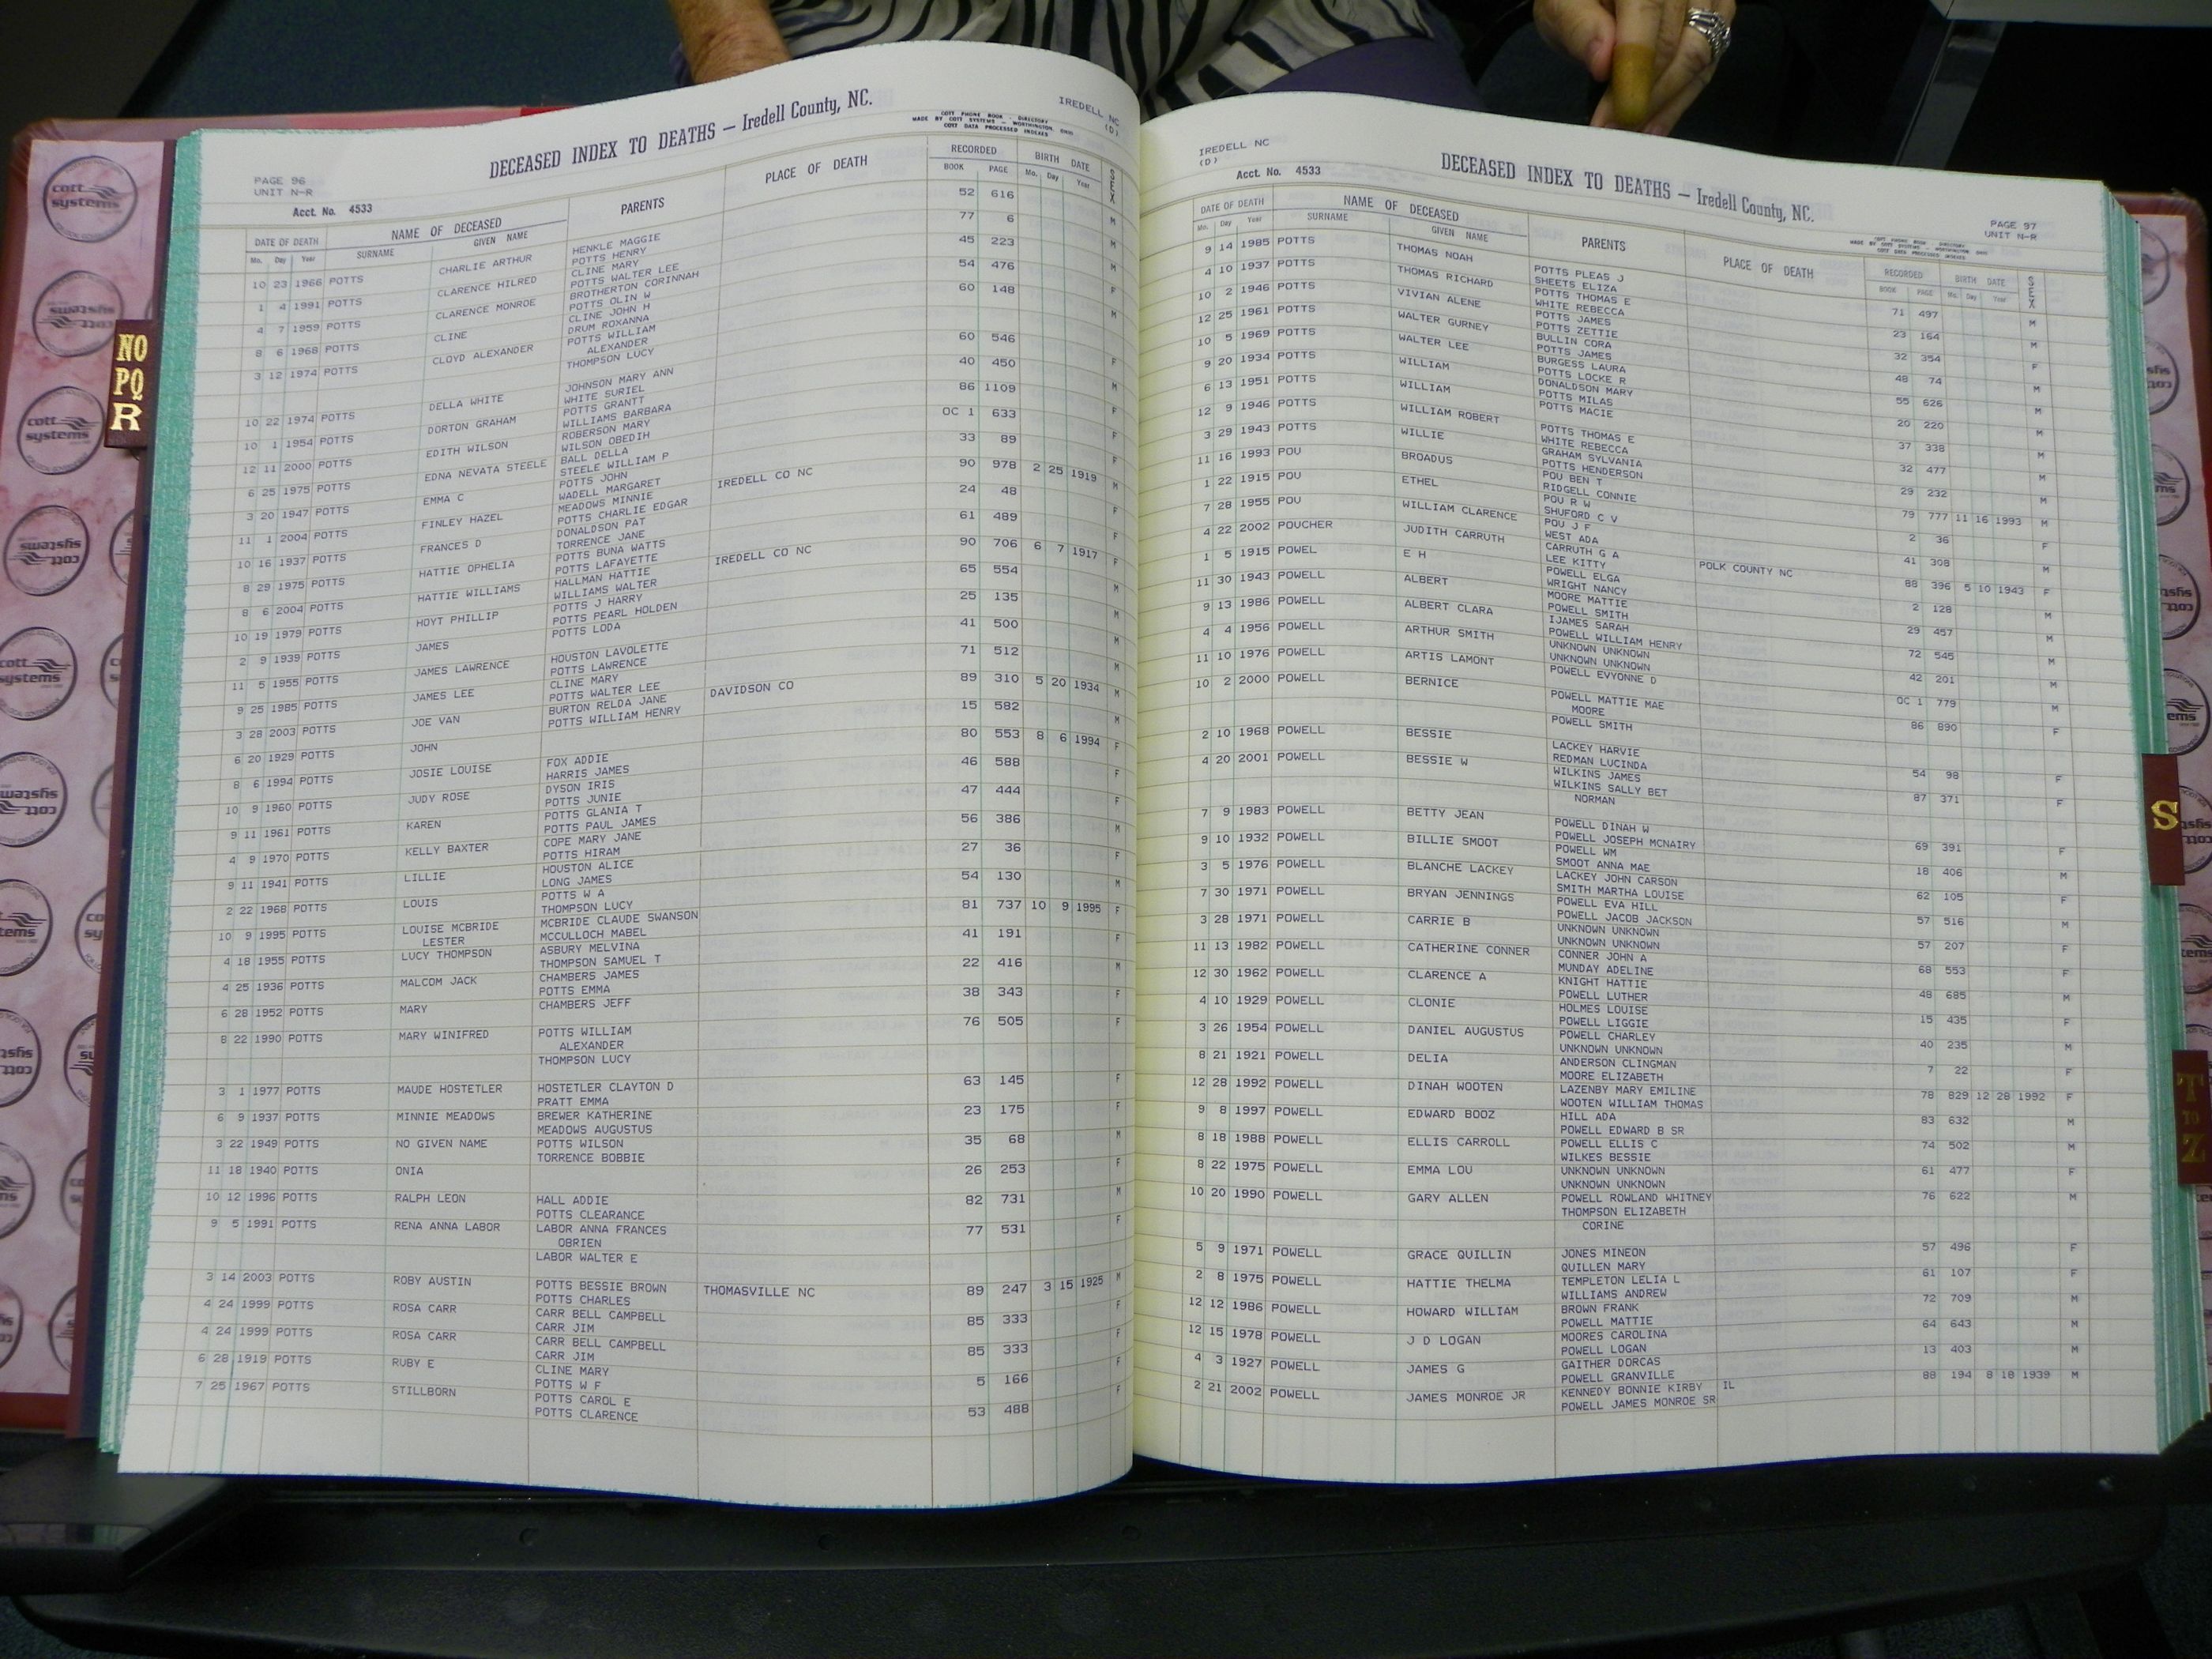 IREDELL NC
(D)
DECEASED INDEX TO DEATHS — Iredell County, NC.
COTT PHONE BOOK - DIRECTORY
MADE BY COTT SYSTEMS — WORTHINGTON, OHIO
COTT DATA PROCESSED INDEXES
PAGE 96
UNIT N-R
Acct. No. 4533
DATE OF DEATH NAME OF DECEASED PARENTS PLACE OF DEATH RECORDED BIRTH DATE SEX
Mo. Day Year SURNAME GIVEN NAME BOOK PAGE Mo. Day Year
10 23 1966 POTTS CHARLIE ARTHUR HENKLE MAGGIE 52 616 M
POTTS HENRY
1 4 1991 POTTS CLARENCE HILRED CLINE MARY 77 6 M
POTTS WALTER LEE
4 7 1959 POTTS CLARENCE MONROE BROTHERTON CORINNAH 45 223 M
POTTS OLIN W
8 6 1968 POTTS CLINE CLINE JOHN H 54 476 F
DRUM ROXANNA
3 12 1974 POTTS CLOYD ALEXANDER POTTS WILLIAM 60 148 M
ALEXANDER
THOMPSON LUCY
10 22 1974 POTTS DELLA WHITE JOHNSON MARY ANN 60 546 F
WHITE SURIEL
10 1 1954 POTTS DORTON GRAHAM POTTS GRANTT 40 450 M
WILLIAMS BARBARA
12 11 2000 POTTS EDITH WILSON ROBERSON MARY 86 1109 F
WILSON OBEDIH
6 25 1975 POTTS EDNA NEVATA STEELE BALL DELLA OC 1 633 F
STEELE WILLIAM P
3 20 1947 POTTS EMMA C POTTS JOHN 33 89 F
WADELL MARGARET
11 1 2004 POTTS FINLEY HAZEL MEADOWS MINNIE IREDELL CO NC 90 978 2 25 1919 M
POTTS CHARLIE EDGAR
10 16 1937 POTTS FRANCES D DONALDSON PAT 24 48 F
TORRENCE JANE
8 29 1975 POTTS HATTIE OPHELIA POTTS BUNA WATTS 61 489 F
POTTS LAFAYETTE
8 6 2004 POTTS HATTIE WILLIAMS HALLMAN HATTIE IREDELL CO NC 90 706 6 7 1917 F
WILLIAMS WALTER
10 19 1979 POTTS HOYT PHILLIP POTTS J HARRY 65 554 M
POTTS PEARL HOLDEN
2 9 1939 POTTS JAMES POTTS LODA 25 135 M
11 5 1955 POTTS JAMES LAWRENCE HOUSTON LAVOLETTE 41 500 M
POTTS LAWRENCE
9 25 1985 POTTS JAMES LEE CLINE MARY 71 512 M
POTTS WALTER LEE
3 28 2003 POTTS JOE VAN BURTON RELDA JANE DAVIDSON CO 89 310 5 20 1934 M
POTTS WILLIAM HENRY
6 20 1929 POTTS JOHN 15 582 M
8 6 1994 POTTS JOSIE LOUISE FOX ADDIE 80 553 8 6 1994 F
HARRIS JAMES
10 9 1960 POTTS JUDY ROSE DYSON IRIS 46 588 F
POTTS JUNIE
9 11 1961 POTTS KAREN POTTS GLANIA T 47 444 F
POTTS PAUL JAMES
4 9 1970 POTTS KELLY BAXTER COPE MARY JANE 56 386 M
POTTS HIRAM
9 11 1941 POTTS LILLIE HOUSTON ALICE 27 36 F
LONG JAMES
2 22 1968 POTTS LOUIS POTTS W A 54 130 M
THOMPSON LUCY
10 9 1995 POTTS LOUISE MCBRIDE MCBRIDE CLAUDE SWANSON 81 737 10 9 1995 F
LESTER MCCULLOCH MABEL
4 18 1955 POTTS LUCY THOMPSON ASBURY MELVINA 41 191 F
THOMPSON SAMUEL T
4 25 1936 POTTS MALCOM JACK CHAMBERS JAMES 22 416 M
POTTS EMMA
6 28 1952 POTTS MARY CHAMBERS JEFF 38 343 F
8 22 1990 POTTS MARY WINIFRED POTTS WILLIAM 76 505 F
ALEXANDER
THOMPSON LUCY
3 1 1977 POTTS MAUDE HOSTETLER HOSTETLER CLAYTON D 63 145 F
PRATT EMMA
6 9 1937 POTTS MINNIE MEADOWS BREWER KATHERINE 23 175 F
MEADOWS AUGUSTUS
3 22 1949 POTTS NO GIVEN NAME POTTS WILSON 35 68 M
TORRENCE BOBBIE
11 18 1940 POTTS ONIA 26 253 F
10 12 1996 POTTS RALPH LEON HALL ADDIE 82 731 M
POTTS CLEARANCE
9 5 1991 POTTS RENA ANNA LABOR LABOR ANNA FRANCES 77 531 F
OBRIEN
LABOR WALTER E
3 14 2003 POTTS ROBY AUSTIN POTTS BESSIE BROWN THOMASVILLE NC 89 247 3 15 1925 M
POTTS CHARLES
4 24 1999 POTTS ROSA CARR CARR BELL CAMPBELL 85 333 F
CARR JIM
4 24 1999 POTTS ROSA CARR CARR BELL CAMPBELL 85 333 F
CARR JIM
6 28 1919 POTTS RUBY E CLINE MARY 5 166 F
POTTS W F
7 25 1967 POTTS STILLBORN POTTS CAROL E 53 488 F
POTTS CLARENCE
IREDELL NC
(D)
Acct. No. 4533
DECEASED INDEX TO DEATHS — Iredell County, NC.
PAGE 97
UNIT N-R
COTT PHONE BOOK - DIRECTORY
MADE BY COTT SYSTEMS — WORTHINGTON, OHIO
COTT DATA PROCESSED INDEXES
DATE OF DEATH NAME OF DECEASED PARENTS PLACE OF DEATH RECORDED BIRTH DATE SEX
Mo. Day Year SURNAME GIVEN NAME BOOK PAGE Mo. Day Year
9 14 1985 POTTS THOMAS NOAH POTTS PLEAS J 71 497 M
SHEETS ELIZA
4 10 1937 POTTS THOMAS RICHARD POTTS THOMAS E 23 164 M
WHITE REBECCA
10 2 1946 POTTS VIVIAN ALENE POTTS JAMES 32 354 F
POTTS ZETTIE
12 25 1961 POTTS WALTER GURNEY BULLIN CORA 48 74 M
POTTS JAMES
10 5 1969 POTTS WALTER LEE BURGESS LAURA 55 626 M
POTTS LOCKE R
9 20 1934 POTTS WILLIAM DONALDSON MARY 20 220 M
POTTS MILAS
6 13 1951 POTTS WILLIAM POTTS MACIE 37 338 M
12 9 1946 POTTS WILLIAM ROBERT POTTS THOMAS E 32 477 M
WHITE REBECCA
3 29 1943 POTTS WILLIE GRAHAM SYLVANIA 29 232 M
POTTS HENDERSON
11 16 1993 POU BROADUS POU BEN T 79 777 11 16 1993 M
RIDGELL CONNIE
1 22 1915 POU ETHEL POU R W 2 36 F
SHUFORD C V
7 28 1955 POU WILLIAM CLARENCE POU J F 41 308 M
WEST ADA
4 22 2002 POUCHER JUDITH CARRUTH CARRUTH G A POLK COUNTY NC 88 396 5 10 1943 F
LEE KITTY
1 5 1915 POWEL E H POWELL ELGA 2 128 M
WRIGHT NANCY
11 30 1943 POWELL ALBERT MOORE MATTIE 29 457 M
POWELL SMITH
9 13 1986 POWELL ALBERT CLARA IJAMES SARAH 72 545 M
POWELL WILLIAM HENRY
4 4 1956 POWELL ARTHUR SMITH UNKNOWN UNKNOWN 42 201 M
UNKNOWN UNKNOWN
11 10 1976 POWELL ARTIS LAMONT POWELL EVYONNE D OC 1 779 M
10 2 2000 POWELL BERNICE POWELL MATTIE MAE 86 890 F
MOORE
POWELL SMITH
2 10 1968 POWELL BESSIE LACKEY HARVIE 54 98 F
REDMAN LUCINDA
4 20 2001 POWELL BESSIE W WILKINS JAMES 87 371 F
WILKINS SALLY BET
NORMAN
7 9 1983 POWELL BETTY JEAN POWELL DINAH W 69 391 F
POWELL JOSEPH MCNAIRY
9 10 1932 POWELL BILLIE SMOOT POWELL WM 18 406 M
SMOOT ANNA MAE
3 5 1976 POWELL BLANCHE LACKEY LACKEY JOHN CARSON 62 105 F
SMITH MARTHA LOUISE
7 30 1971 POWELL BRYAN JENNINGS POWELL EVA HILL 57 516 M
POWELL JACOB JACKSON
3 28 1971 POWELL CARRIE B UNKNOWN UNKNOWN 57 207 F
UNKNOWN UNKNOWN
11 13 1982 POWELL CATHERINE CONNER CONNER JOHN A 68 553 F
MUNDAY ADELINE
12 30 1962 POWELL CLARENCE A KNIGHT HATTIE 48 685 M
POWELL LUTHER
4 10 1929 POWELL CLONIE HOLMES LOUISE 15 435 F
POWELL LIGGIE
3 26 1954 POWELL DANIEL AUGUSTUS POWELL CHARLEY 40 235 M
UNKNOWN UNKNOWN
8 21 1921 POWELL DELIA ANDERSON CLINGMAN 7 22 F
MOORE ELIZABETH
12 28 1992 POWELL DINAH WOOTEN LAZENBY MARY EMILINE 78 829 12 28 1992 F
WOOTEN WILLIAM THOMAS
9 8 1997 POWELL EDWARD BOOZ HILL ADA 83 632 M
POWELL EDWARD B SR
8 18 1988 POWELL ELLIS CARROLL POWELL ELLIS C 74 502 M
WILKES BESSIE
8 22 1975 POWELL EMMA LOU UNKNOWN UNKNOWN 61 477 F
UNKNOWN UNKNOWN
10 20 1990 POWELL GARY ALLEN POWELL ROWLAND WHITNEY 76 622 M
THOMPSON ELIZABETH
CORINE
5 9 1971 POWELL GRACE QUILLIN JONES MINEON 57 496 F
QUILLEN MARY
2 8 1975 POWELL HATTIE THELMA TEMPLETON LELIA L 61 107 F
WILLIAMS ANDREW
12 12 1986 POWELL HOWARD WILLIAM BROWN FRANK 72 709 M
POWELL MATTIE
12 15 1978 POWELL J D LOGAN MOORES CAROLINA 64 643 M
POWELL LOGAN
4 3 1927 POWELL JAMES G GAITHER DORCAS 13 403 M
POWELL GRANVILLE
2 21 2002 POWELL JAMES MONROE JR KENNEDY BONNIE KIRBY IL 88 194 8 18 1939 M
POWELL JAMES MONROE SR
NO
PQ
R
S
T
TO
Z
cott
systems